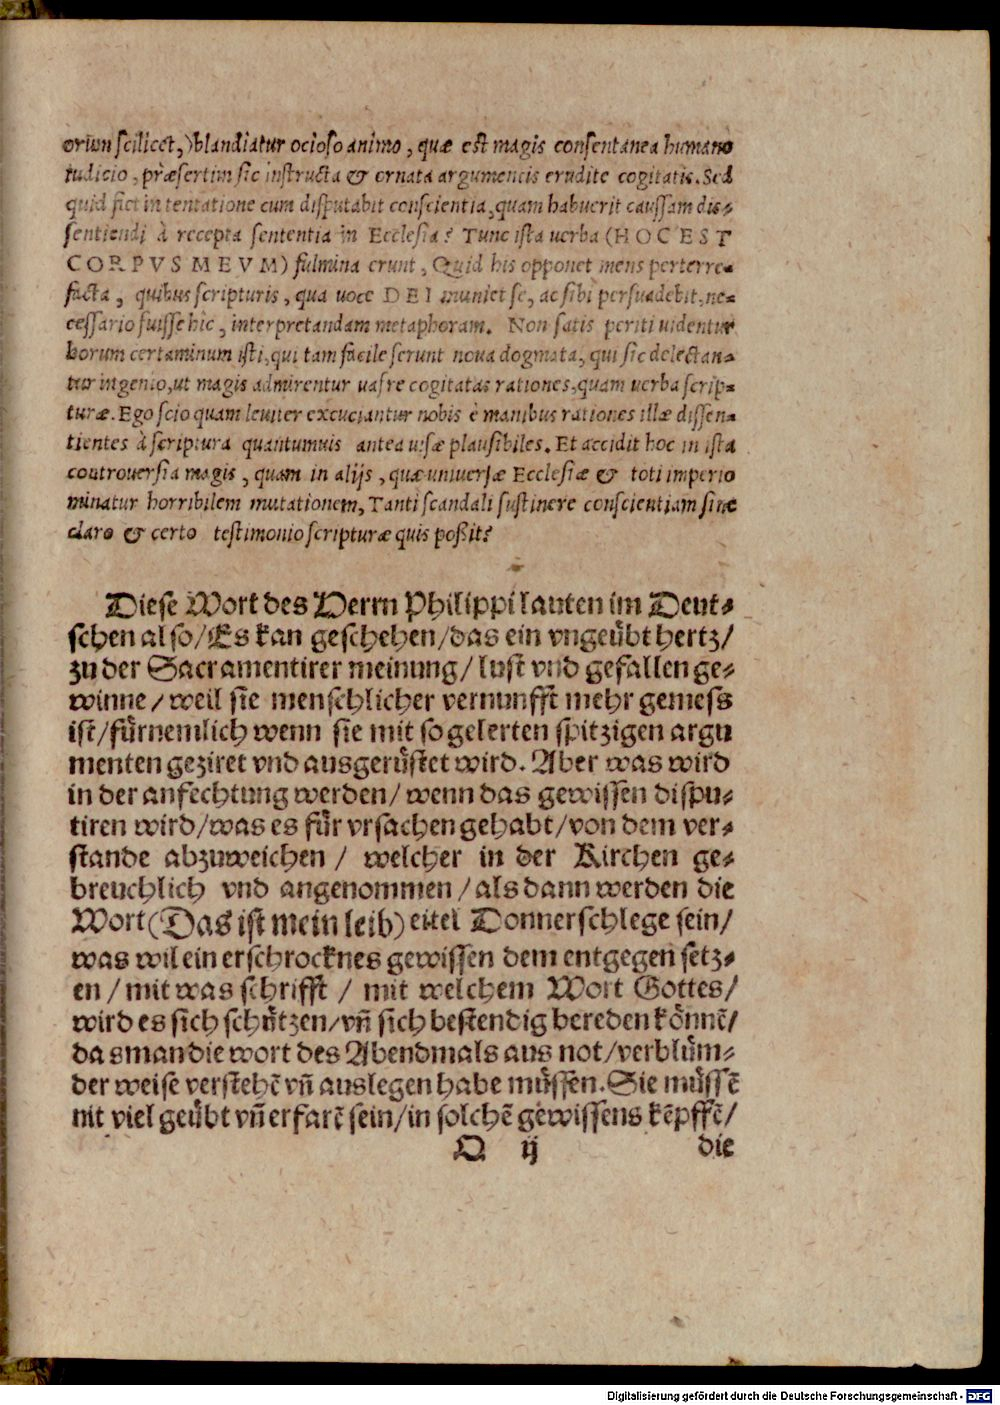 orum scilicet,) blandiatur ocioso animo, quæ est magis consentanea humano
iudicio, præsertim sic instructa & ornata argumentis erudite cogitatis. Sed
quid fiet in tentatione cum disputabit conscientia, quam habuerit caussam dis-
sentiendi à recepta sententia in Ecclesia? Tunc ista uerba (HOC EST
CORPVS MEVM) fulmina erunt, Quid his opponet mens perterre-
facta, quibus scripturis, qua uoce DEI muniet se, ac sibi persuadebit, ne-
cessario fuisse hic, interpretandam metaphoram. Non satis periti uidentur
horum certaminum isti, qui tam facile serunt noua dogmata, qui sic delectan-
tur ingenio, ut magis admirentur uafre cogitatas rationes, quam uerba scrip-
turæ. Ego scio quam leuiter excuciantur nobis è manibus rationes illæ dissen-
tientes à scriptura quantumuis antea uisæ plausibiles. Et accidit hoc in ista
controuersia magis, quam in alijs, quæ uniuersæ Ecclesiæ & toti imperio
minatur horribilem mutationem, Tanti scandali sustinere conscientiam sine
claro & certo testimonio scripturæ quis poßit?
Diese Wort des Herrn Philippi lauten im Deut-
schen also/Es kan geschehen/das ein vngeübt hertz/
zu der Sacramentirer meinung/lust vnd gefallen ge-
winne/weil sie menschlicher vernunfft mehr gemess
ist/fürnemlich wenn sie mit so gelerten spitzigen argu
menten geziret vnd ausgerüstet wird. Aber was wird
in der anfechtung werden/wenn das gewissen dispu-
tiren wird/was es für vrsachen gehabt/von dem ver-
stande abzuweichen/ welcher in der Kirchen ge-
breuchlich vnd angenommen/als dann werden die
Wort (Das ist mein leib) eitel Donnerschlege sein/
was wil ein erschrocknes gewissen dem entgegen setz-
en/mit was schrifft/ mit welchem Wort Gottes/
wird es sich schützen/vñ sich bestendig bereden könnē/
das man die wort des Abendmals aus not/verblüm-
der weise verstehē vñ auslegen habe müssen. Sie müssē
nit viel geübt vñ erfarē sein/in solchē gewissens kēpffē/
Q ij die
Digitalisierung gefördert durch die Deutsche Forschungsgemeinschaft - DFG